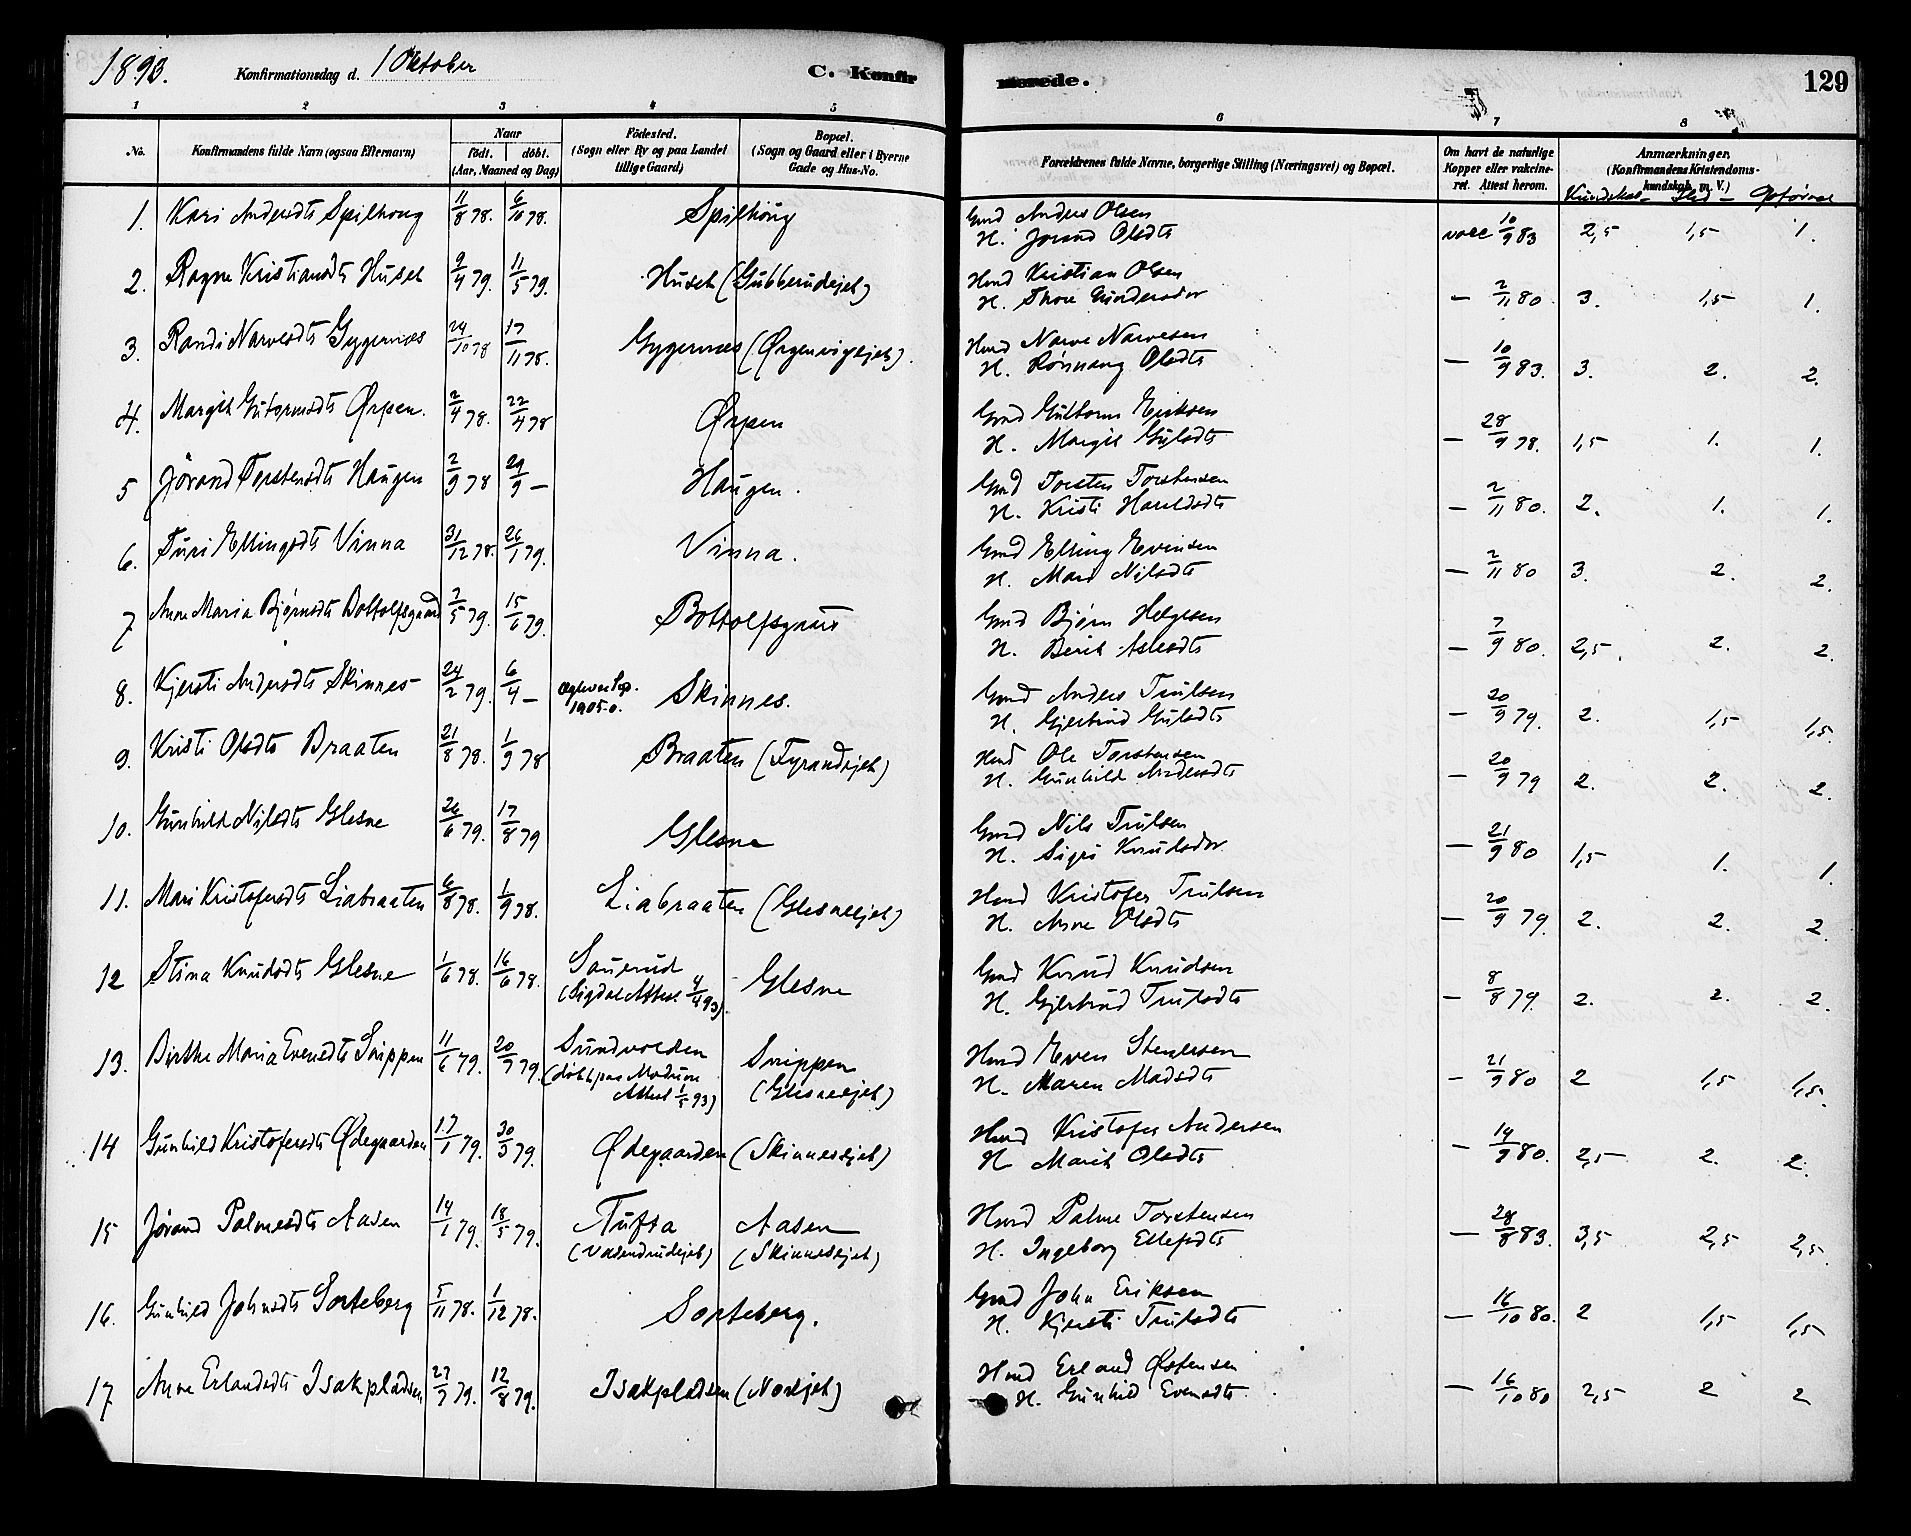 1893. Konfirmationsdag d. 1 Oktober C. Konfirmerede. 129
1 2 3 4 5 6 7 8
No. Konfirmandens fulde Navn (ogsaa Efternavn) Naar födt. döbt. (Aar, Maaned og Dag) Födested. (Sogn eller By og paa Landet tillige Gaard) Bopæl. (Sogn og Gaard eller i Byerne Gade og Hus-No. Forældrenes fulde Navne, borgerlige Stilling (Næringsvei) og Bopæl. Om havt de naturlige Kopper eller vakcineret. Attest herom. Anmærkninger, (Konfirmandens Kristendomskundskab m. V.)
Kundskab – Flid – Opførsel
1. Kari Andersdtr Spilhoug 11/8 78. 6/10 78. Spilhoug Gmd Anders Olsen
H. Jorand Olsdtr vacc 10/9 83 2,5 1,5 1.
2. Ragne Kristiansdtr Huset 9/4 79. 11/5 79. Huset (Gubberudejet) Hmd Kristian Olsen
H. Thore Gundersdtr – 2/11 80. 3. 1,5 1.
3. Randi Narvesdtr Gygernæs 24/10 78 17/11 78. Gygernæs (Ørgenvigejet). Hmd Narve Narvesen
H. Rønnaug Olsdtr – 10/9 83. 3. 2. 2.
4. Margit Gutormsdtr Ørpen. 2/4 78. 22/4 78 Ørpen Gmd Guttorm Eriksen
H. Margit Gulsdtr – 28/9 78. 1,5 1. 1.
5 Jørand Torstensdtr Haugen 2/9 78 29/9 – Haugen. Gmd Torsten Torstensen
H. Kristi Haraldsdtr – 2/11 80. 2. 1. 1.
6. Turi Ellingsdtr Vinna 31/12 78. 26/1 79. Vinna. Gmd Elling Evensen
H. Mari Nilsdtr – 2/11 80 3. 2. 2.
7 Anne Maria Bjørnsdtr Bottolfsgaard 2/5 79. 15/6 79. Bottolfsgaard Gmd Bjørn Helgesen
H. Berit Aslesdtr – 7/9 80. 2,5. 2. 2.
8. Kjersti Andersdtr Skinnes 24/2 79. 6/4 – Skinnes. Gmd Anders Trulsen
1905. H. Gjertrud Gulsdtr – 20/9 79. 2. 1,5 1,5.
9. Kristi Olsdtr Braaten 21/8 78. 1/9 78 Braaten (Fyrandejet) Hmd Ole Torstensen
H. Gunhild Andersdtr – 20/9 79 2. 2. 2.
10. Gunhild Nilsdtr Glesne 26/6 79. 17/8 79 Glesne Gmd Nils Trulsen
H. Sigri Knudsdtr – 21/9 80 1,5 1. 1.
11. Mari Kristofersdtr Liabraaten 6/8 78. 1/9 78. Liabraaten (Glesneejet) Hmd Kristofer Trulsen
H. Anne Olsdtr – 20/9 79 2. 2. 2.
12 Stina Knudsdtr Glesne 1/6 78. 16/6 78. Souerud Glesne Gmd Knud Knudsen
(Sigdal Attest 4/4 93) H. Gjertrud Trulsdtr – 8/8 79. 2. 2. 2.
13. Birthe Maria Evensdtr Snippen 11/6 79. 20/9 79. Sundvolden Snippen Hmd Even Stensen
(døbt paa Modum Attest 1/5 93) (Glesneejet) H. Maren Madsdtr – 21/9 80 2 1,5 1,5.
14 Gunhild Kristofersdtr Ødegaarden 17/1 79. 30/3 79. Ødegaarden (Skinnesejet) Hmd Kristofer Andersen
H Marit Olsdtr – 14/9 80. 2,5 2. 2.
15 Jørand Palmesdtr Aasen 14/1 79. 18/5 79. Tufta Aasen Hmd Palme Torstensen
(Vasendrudejet) (Skinnesejet) H. Ingeborg Ellefsdtr – 28/8 83. 3,5 2,5 2,5
16. Gunhild Johnsdtr Sorteberg 5/11 78. 1/12 78. Sorteberg. Gmd John Eriksen
H. Kjersti Trulsdtr – 16/10 80. 2 1,5 1,5
17 Anne Erlandsdtr Isakpladsen 27/3 79. 12/4 79. Isakpladsen (Norejet) Hmd Erland Østensen
H. Gunhild Evensdtr. – 16/10 80 2,5 2 2